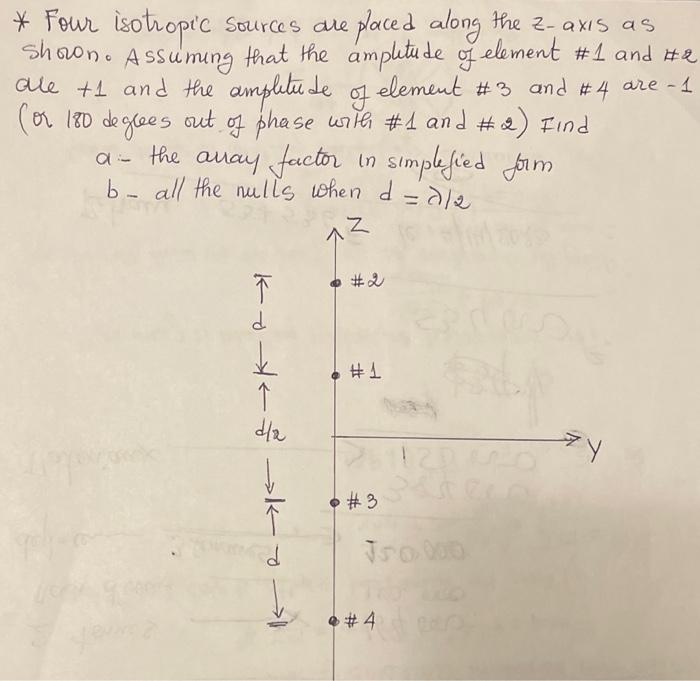 * Four isotropic sources are placed along the z-axis as
shown. Assuming that the amplitude of element #1 and #2
are +1 and the amplitude of element #3 and #4 are -1
(or 180 degrees out of phase with #1 and #2) Find
a- the array factor in simplefied form
b- all the nulls when d = λ/2
Z
#2
d
#1
d/2
Y
#3
d
#4